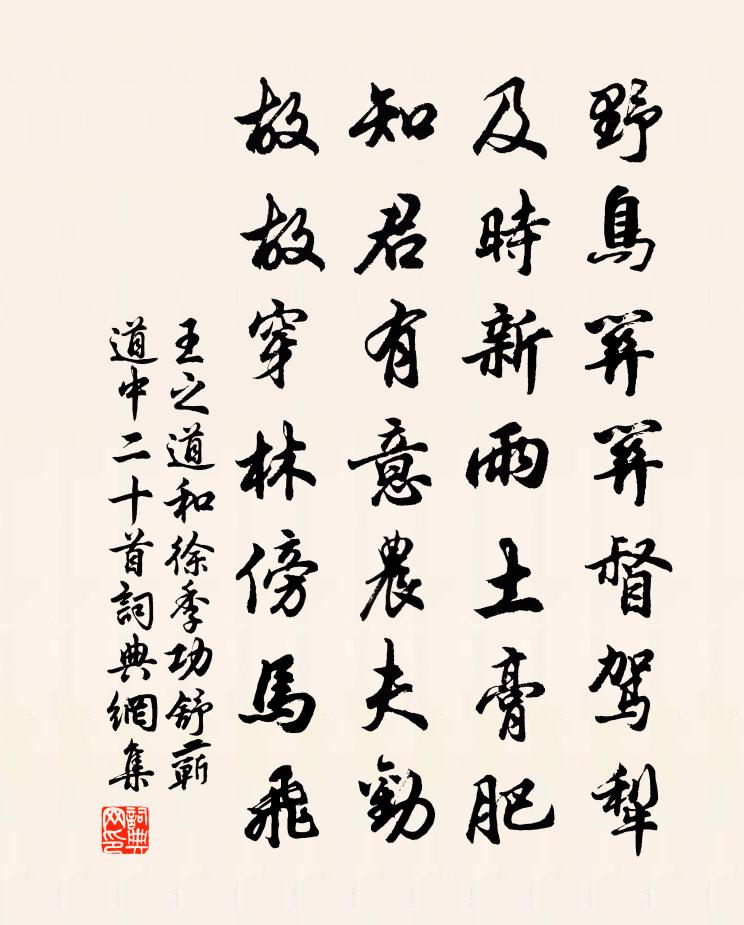 野鳥關關督駕犁
及時新雨土膏肥
知君有意農夫勸
故故穿林傍馬飛
王之道和徐季功舒蘄
道中二十首詞典網集
詞典
网印